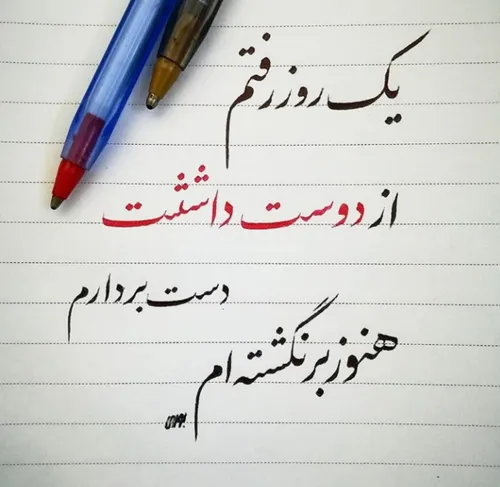 یک روز رفتم
از دوست داشتنت
دست بردارم
هنوز برنگشته ام